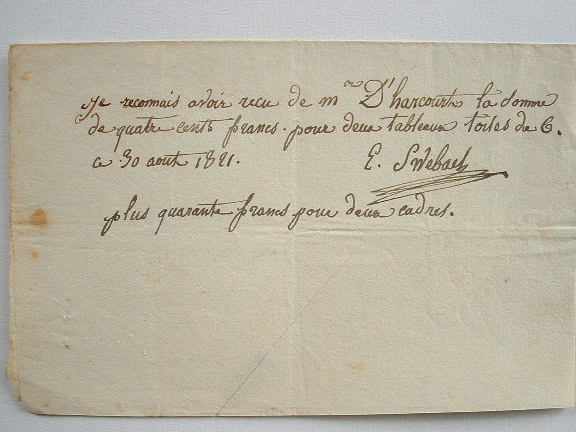 je reconnais avoir recu de mr D'harcourt la somme
de quatre cents francs. pour deux tableaux toiles de 6.
ce 30 aout 1821. E. Swebach
plus quarante francs pour deux cadres.